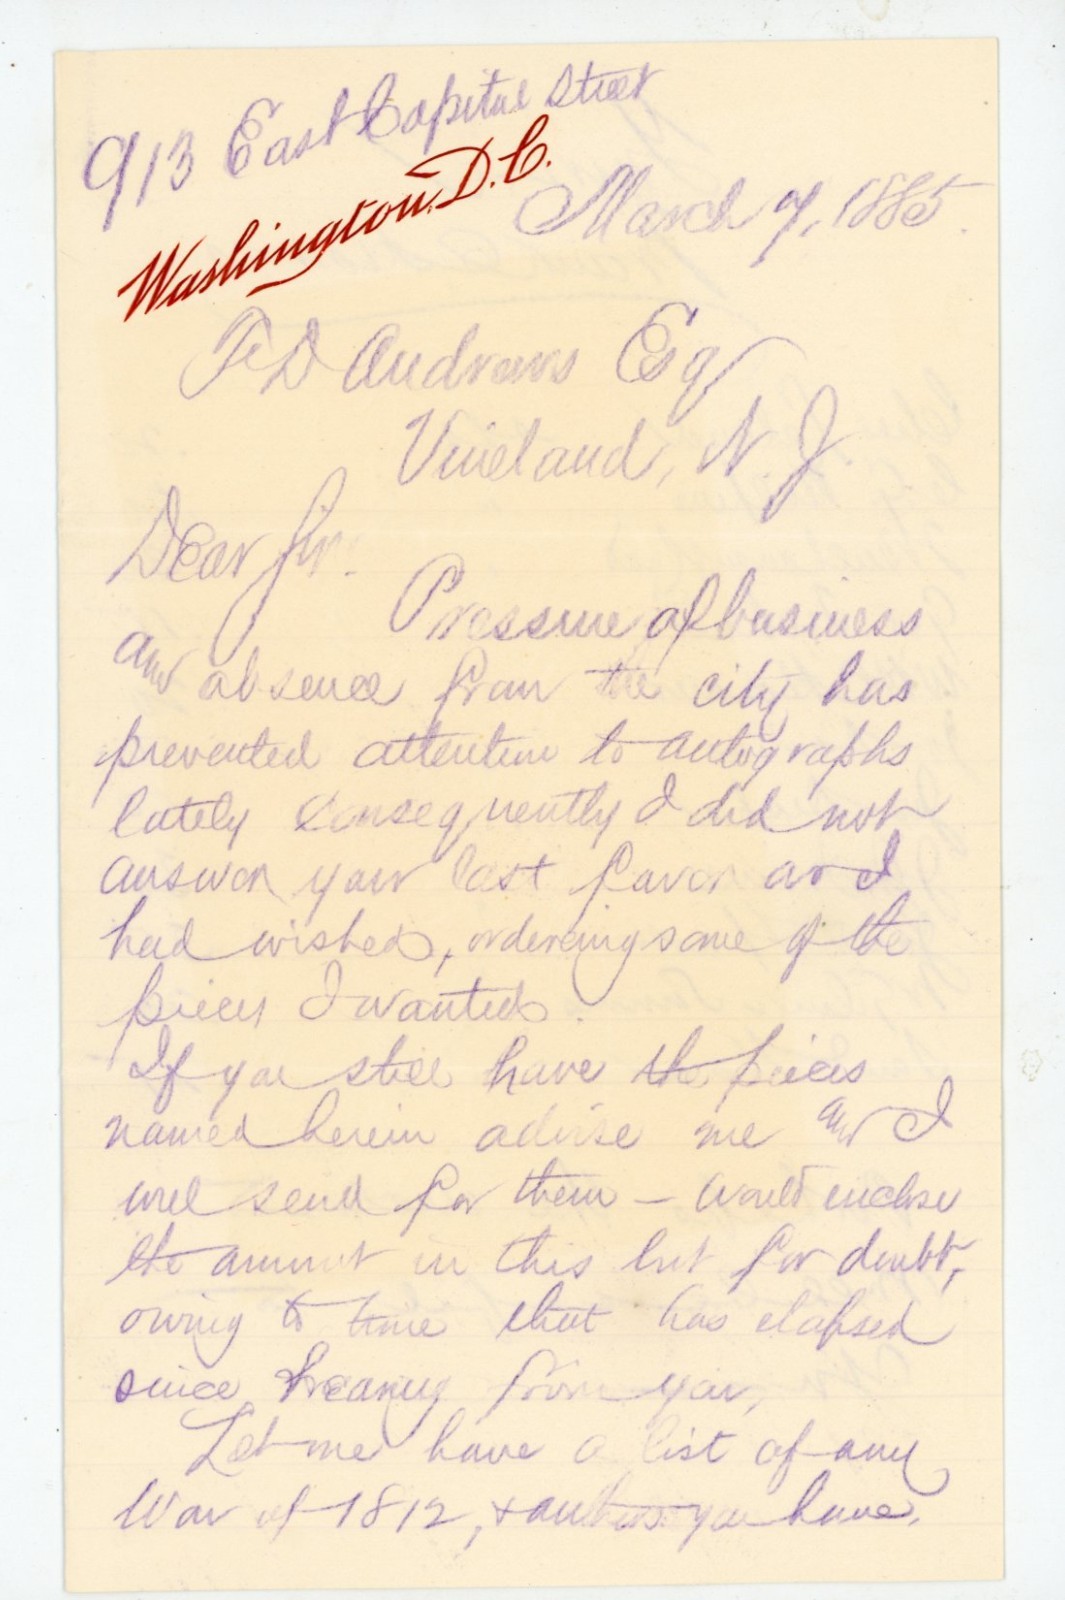 913 East Capitol Street
Washington, D.C.
March 7, 1885.
F D Andrews Esq
Vineland, N. J.
Dear Sir.
Pressure of business
and absence from the city has
prevented attention to autographs
lately consequently I did not
answer your last favor as I
had wished, ordering some of the
pieces I wanted.
If you still have the pieces
named herein advise me and I
will send for them — would enclose
the amount in this but for doubt,
owing to time that has elapsed
since hearing from you,
Let me have a list of any
War of 1812, & authors you have.